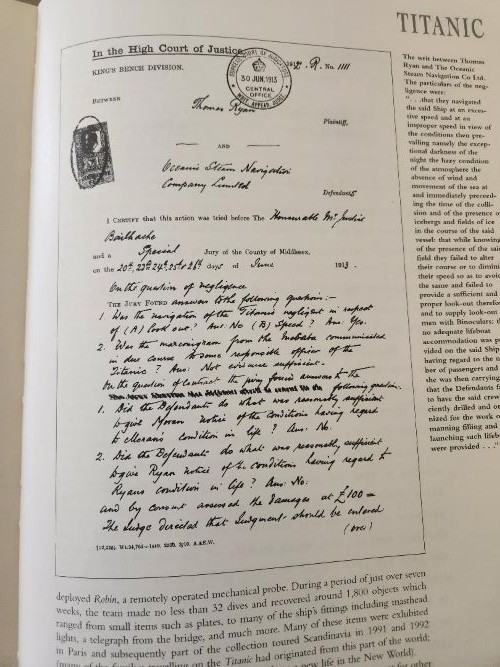 TITANIC
In the High Court of Justice.
1912. R. No. 1111
KING'S BENCH DIVISION.
30 JUN. 1913
CENTRAL
OFFICE
BETWEEN
Thomas Ryan
Plaintiff,
AND
Oceanic Steam Navigation
Company Limited
Defendants
I CERTIFY that this action was tried before The Honourable Mr Justice
Bailhache
and a Special Jury of the County of Middlesex,
on the 20th, 23rd 24th, 25th & 26th days of June 1913.
On the question of negligence
THE JURY FOUND answers to the following questions:-
1. Was the navigation of the Titanic negligent in respect
of (A) look out? Ans: No (B) Speed? Ans: Yes.
2. Was the marconigram from the Mesaba communicated
in due course to some responsible officer of the
Titanic? Ans: Not evidence sufficient.
On the question of Contract the jury found answers to the
following question.
1. Did the Defendants do what was reasonably sufficient
to give Moran notice of the conditions having regard
to Morans condition in life? Ans: No.
2. Did the Defendants do what was reasonably sufficient
to give Ryan notice of the conditions having regard to
Ryans condition in life? Ans: No.
and by consent assessed the damages at £100=
The Judge directed that Judgment should be entered
(over)
The writ between Thomas
Ryan and The Oceanic
Steam Navigation Co Ltd.
The particulars of the neg-
ligence were:
"...that they navigated
the said Ship at an exces-
sive speed and at an
improper speed in view of
the conditions then pre-
vailing namely the excep-
tional darkness of the
night the hazy condition
of the atmosphere the
absence of wind and
movement of the sea at
and immediately preceed-
ing the time of the colli-
sion and of the presence of
icebergs and fields of ice
in the course of the said
vessel: that while knowing
of the presence of the said
field they failed to alter
their course or to diminish
their speed so as to avoid
the same and failed to
provide a sufficient and
proper look-out therefor
and to supply look-out
men with Binoculars: that
no adequate lifeboat
accommodation was pro-
vided on the said Ship
having regard to the num-
ber of passengers and
she was then carrying
that the Defendants failed
to have the said crew
ciently drilled and or
nized for the work of
manning filling and
launching such lifeb
were provided ..."
deployed Robin, a remotely operated mechanical probe. During a period of just over seven
weeks, the team made no less than 32 dives and recovered around 1,800 objects which
ranged from small items such as plates, to many of the ship's fittings including masthead
lights, a telegraph from the bridge, and much more. Many of these items were exhibited
in Paris and subsequently part of the collection toured Scandinavia in 1991 and 1992
(many of the families travelling on the Titanic had originated from this part of the world;
a new life in the New World).